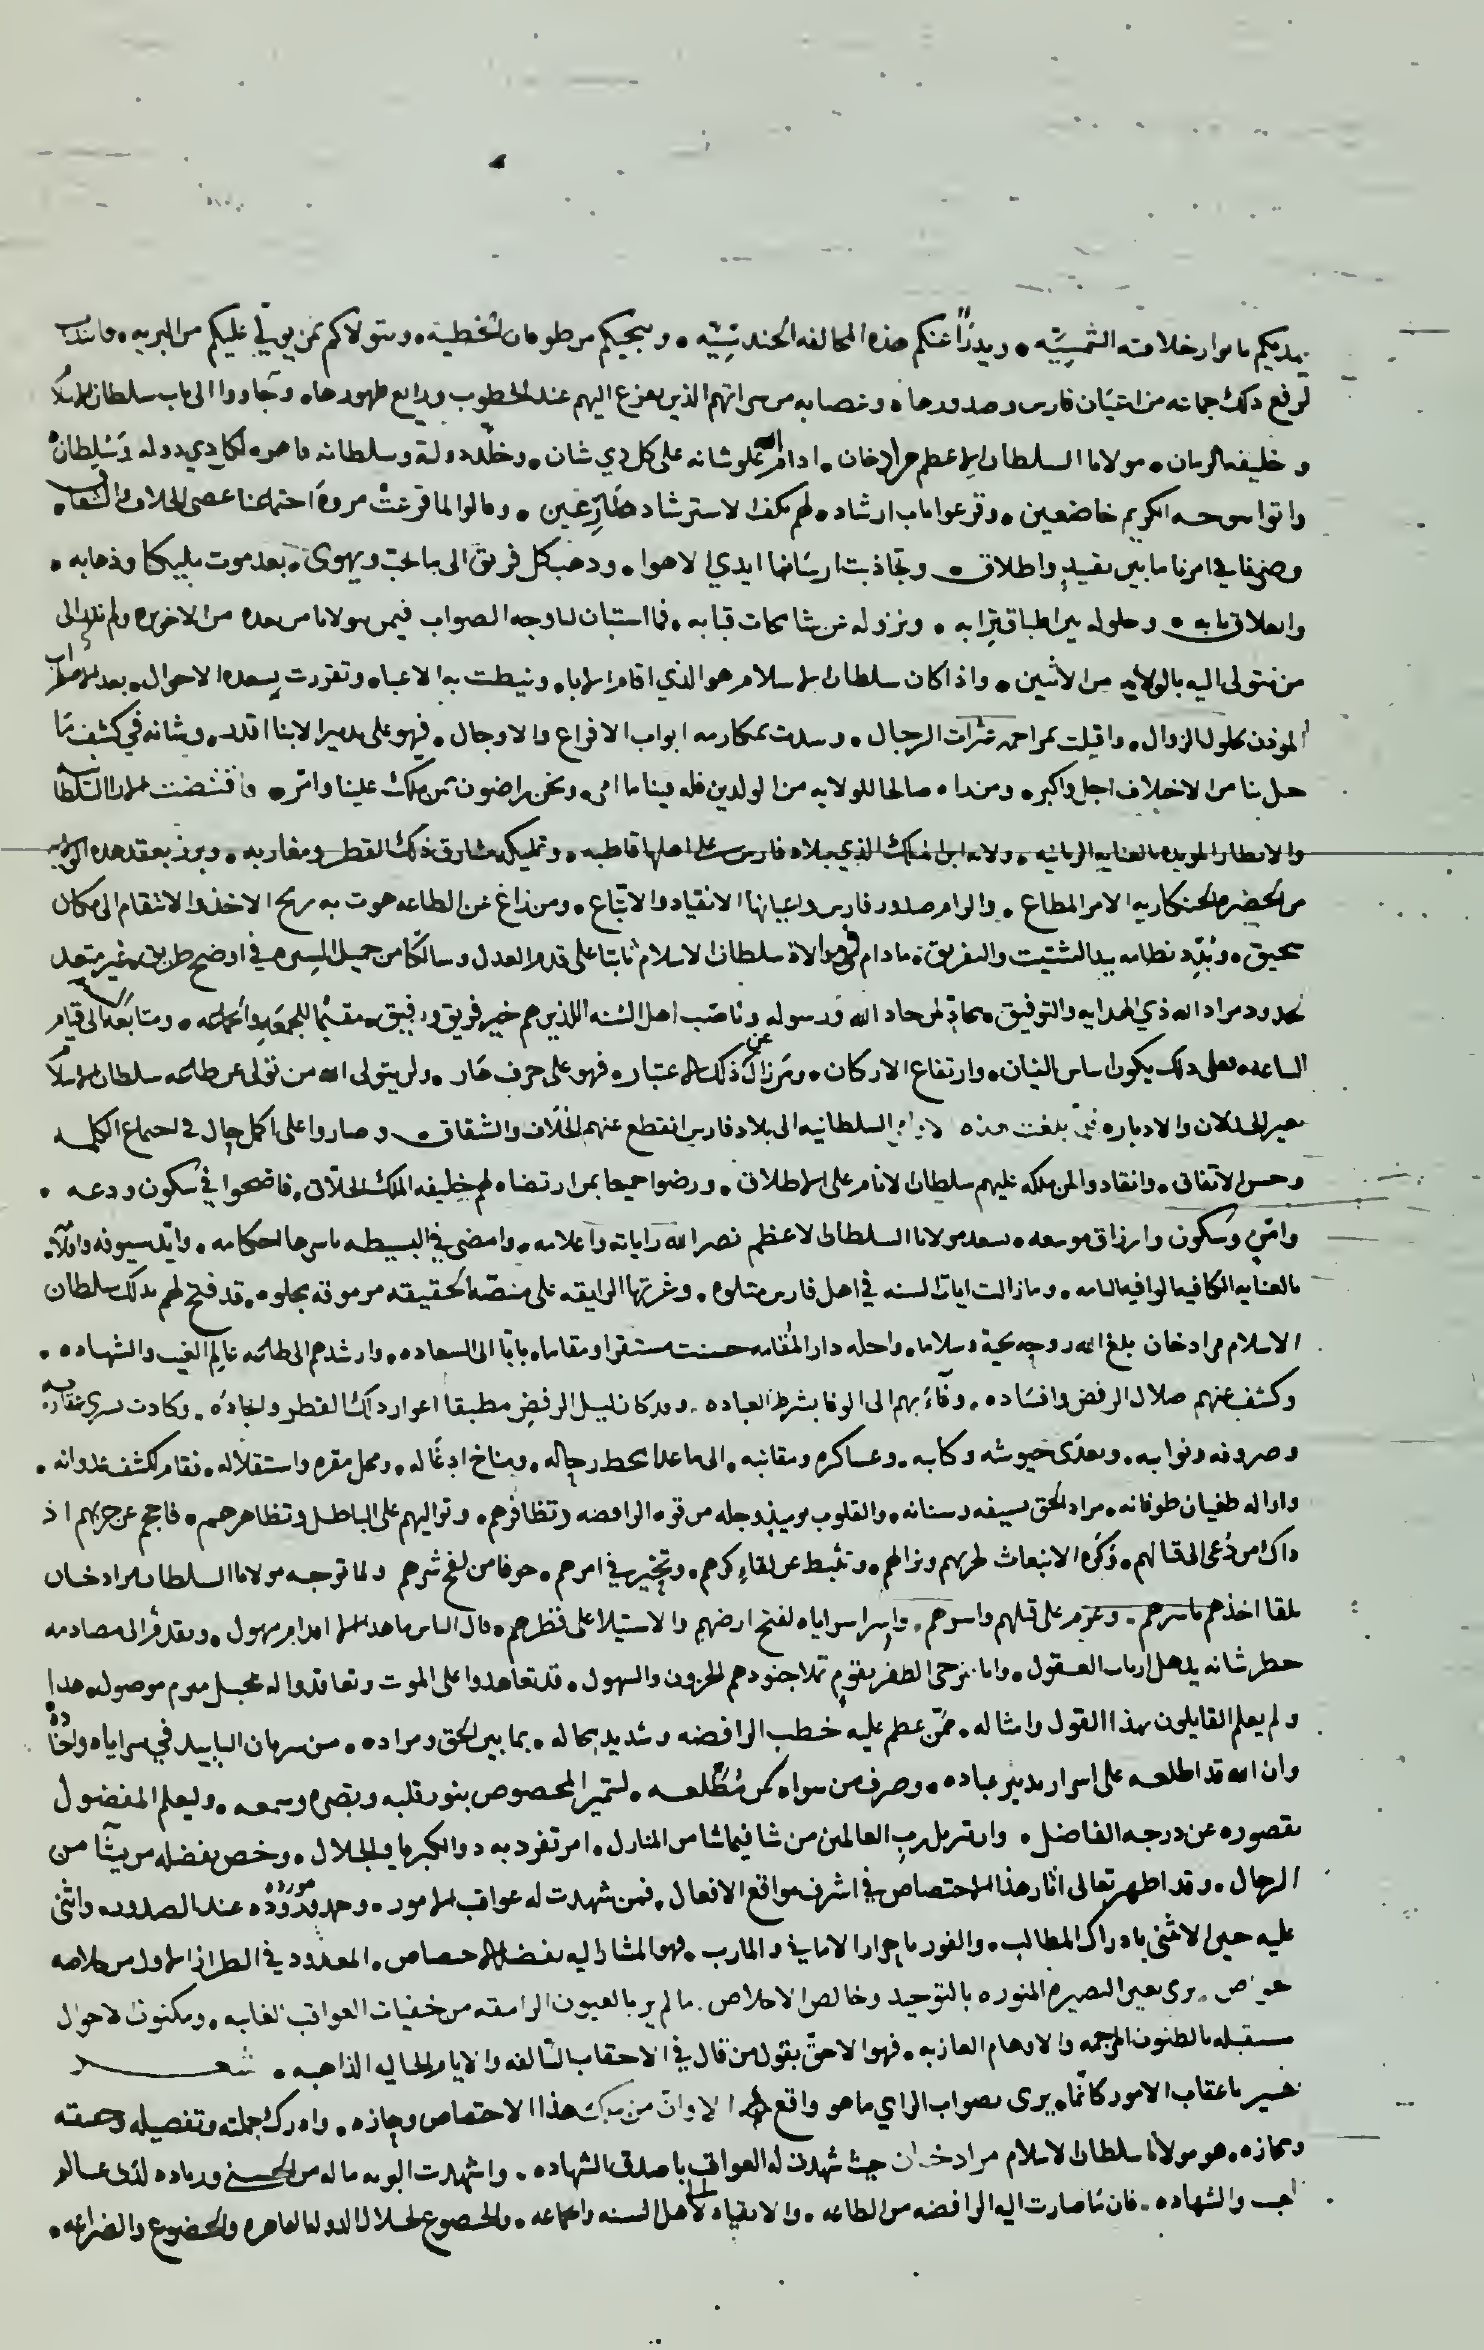 يهديكم بانوار خلافته الشمسيه ويدرأ عنكم هذه المخالفه الحندسيه وينجيكم من طوفان الخطيه ويتولاكم بمن يولي عليكم من البريه فانتدب
لرفع ذلك جماعه من اعيان فارس وصدورها وعصابه من سراتهم الذين يفزع اليهم عند الخطوب وجاووا الى باب سلطان الاسلام
وخليفه الزمان مولانا السلطان الاعظم مراد خان ادام الله علو شانه على كل ذي شان وخلد دولة وسلطانه قاهره لكل ذي دوله وسلطان
واتوا سوحه الكريم خاضعين وقرعوا باب ارشاده لهم بكف الاسترشاد ضارعين وقالوا لما قرعت مروة اجتماعنا عصى الخلاف والشقاق
وصرنا في امرنا ما بين تقييد واطلاق وتجاذبت ارساننا ايدي الاهوا وذهب كل فريق الى ما يحب ويهوى بعد موت مليكنا وذهابه
وانغلاق بابه وحلوله بين اطباق ترابه ونزوله عن شامخات قبابه فما استبان لنا وجه الصواب فيمن مولانا من بعده من الاخر ولم نهتد الى
من نتولى اليه بالولايه من الاثنين واذا كان سلطان الاسلام هو الذي اقام الابا ونيطت به الاعباء وتقررت بسعده الاحوال بعد الاضطراب
الموذن بحلول الزوال واقيلت بمراحمه عثرات الرجال وسدت بمكارمه ابواب الافزاع والاوجال فهو على تدبير الابنا اقدر وشانه في كشف ما
حل بنا من الاختلاف اجل واكبر ومن راه صالحا للولايه من الولدين فله فينا ما امر ونحن راضون بمن ملك علينا وامر واقتضت الارا السلطانيه
والانظار المويده بالعنايه الربانيه ولايه ابن الملك الذي ببلاد فارس على اهلها قاطبه وتمليكه مشارق ذلك القطر ومغاربه وبرز بعقد هذه الولايه
من الحضره الخنكاريه الامر المطاع والزام صدور فارس واعيانها الانقياد والاتباع ومن زاغ عن الطاعه هوت به ريح الاخذ والانتقام الى مكان
سحيق وبدد نظامه بيد التشتيت والتفريق ما دام في موالاة سلطان الاسلام ثابتا على قدم العدل وسالكا من جميل السيره في اوضح طريق غير متعد
لحدود مراد الله ذي الهدايه والتوفيق محاد لمن حاد الله ورسوله وناصب اهل السنه اللذين هم خير فريق ورفيق مقيما للجمعه والجماعه ومتابعه الى قيام
الساعه فعلى ذلك يكون اساس البنيان وارتفاع الاركان ومن زال عن ذلك الاعتبار فهو على جرف هار ولن يتولى الله من تولى عن طاعه سلطان الاسلام
بغير الخذلان والادبار فحين بلغت هذه الاوامر السلطانيه الى بلاد فارس انقطع عنهم الخلاف والشقاق وصاروا على اكمل حال في اجتماع الكلمه
وحسن الاتفاق وانقادوا لمن ملكه عليهم سلطان الانام على الاطلاق ورضوا جميعا بمن ارتضاه لهم خليفه الملك الخلاق فاضحوا في سكون ودعه
وامن وسكون وارزاق موسعه بسعد مولانا السلطان الاعظم نصر الله راياته واعلامه وامضى في البسيطه باسرها احكامه وايد سيوفه واقلامه
بالعنايه الكافيه الوافيه التامه وما زالت ايات السنه في اهل فارس متلوه وغرتها الرايقه على منصه الحقيقه مرموقه مجلوه قد فتح لهم بذلك سلطان
الاسلام مراد خان بلغ الله روحه تحية وسلاما واحله دار المقامه حسنت مستقرا ومقاما بابا الى السعاده وارشدهم الى طاعه عالم الغيب والشهاده
وكشف عنهم ضلال الرفض وافساده وفاء بهم الى الوفا بشرط العباده وقد كان ليل الرفض مطبقا اغوار ذلك القطر وانجاده وكادت تسري عقاربه
وصروفه ونوابه وتعدى جيوشه وكتابه وعساكره ومقانبه الى ما عدا محط رحاله ومناخ اثقاله ومحل مقره واستقلاله فقام لكشف عدوانه
وازاله طغيان طوفانه مراد الحق بسيفه وسنانه والقلوب يوميذ وجله من قوه الرافضه وتظافرهم وتواليهم على الباطل وتظاهرهم فاحجم عن حربهم اذ
ذاك من دعي الى قتالهم وكره الانبعاث لحربهم ونزالهم وتثبط عن لقاء كرهم وتحير في امرهم خوفا من لفح شرهم ولما توجه مولانا السلطان مراد خان
بلقا اخذهم باسرهم وعزم على قتلهم واسرهم واسرا سراياه لفتح ارضهم والاستيلا على قطرهم قال الناس ما هذا الا اقدام مهول وتقدم الى مصادمه
خطر شانه يذهل ارباب العقول وانا نرجى الظفر بقوم تملا جنودهم الحزون والسهول قد تعاهدوا على الموت وتعاقدوا له بحبل مبرم موصول هذا
ولم يعلم القايلون بهذا القول وامثاله ممن عظم عليه خطب الرافضه وشديد محاله بما بين الحق ومراده من سريان التاييد في سراياه واجناده
وان الله قد اطلعه على اسرار تدبير عباده وصرف من سواه عن مطلعه ليتميز المخصوص بنور قلبه وبصره وسمعه وليعلم المفضول
بقصوره عن درجه الفاضل وان تنزيل رب العالمين من شا فيما شا من المنازل امر تفرد به ذو الكبريا والجلال وخص بفضله من يشا من
الرجال وقد اظهر تعالى اثار هذا الاختصاص في اشرف مواقع الافعال فمن شهدت له عواقب الامور وحمد وروده عند الصدور واثنى
عليه حين الانثنى بادراك المطالب والفوز باحراز الاماني والمارب فهو المشار اليه بفضل الاختصاص المعدود في الطراز الاول من خلاصه
خواص يرى بعين البصيره المنوره بالتوحيد وخالص الاخلاص ما لم ير بالعيون الرامقه من خفيات العواقب الغايبه ومكنون الاحوال
مستقبله بالظنون المرجمه والاوهام العازبه فهو الاحق بقول من قال في الاحقاب السالفه والايام الخاليه الذاهبه شعر
خبير باعقاب الامور كانما يرى بصواب الراي ما هو واقع الا وان من ملك هذا الاختصاص وحازه وادرك جملته وتفصيله وحقيقته
ومجازه هو مولانا سلطان الاسلام مراد خان حيث شهدت له العواقب باصدق الشهاده واشهدت البريه ماله من الحسنى وزياده لدى عالم
الغيب والشهاده فان ما صارت اليه الرافضه من الطاعه والانقياد لاهل السنه والجماعه والخضوع لجلال الدوله القاهره والخضوع والضراعه